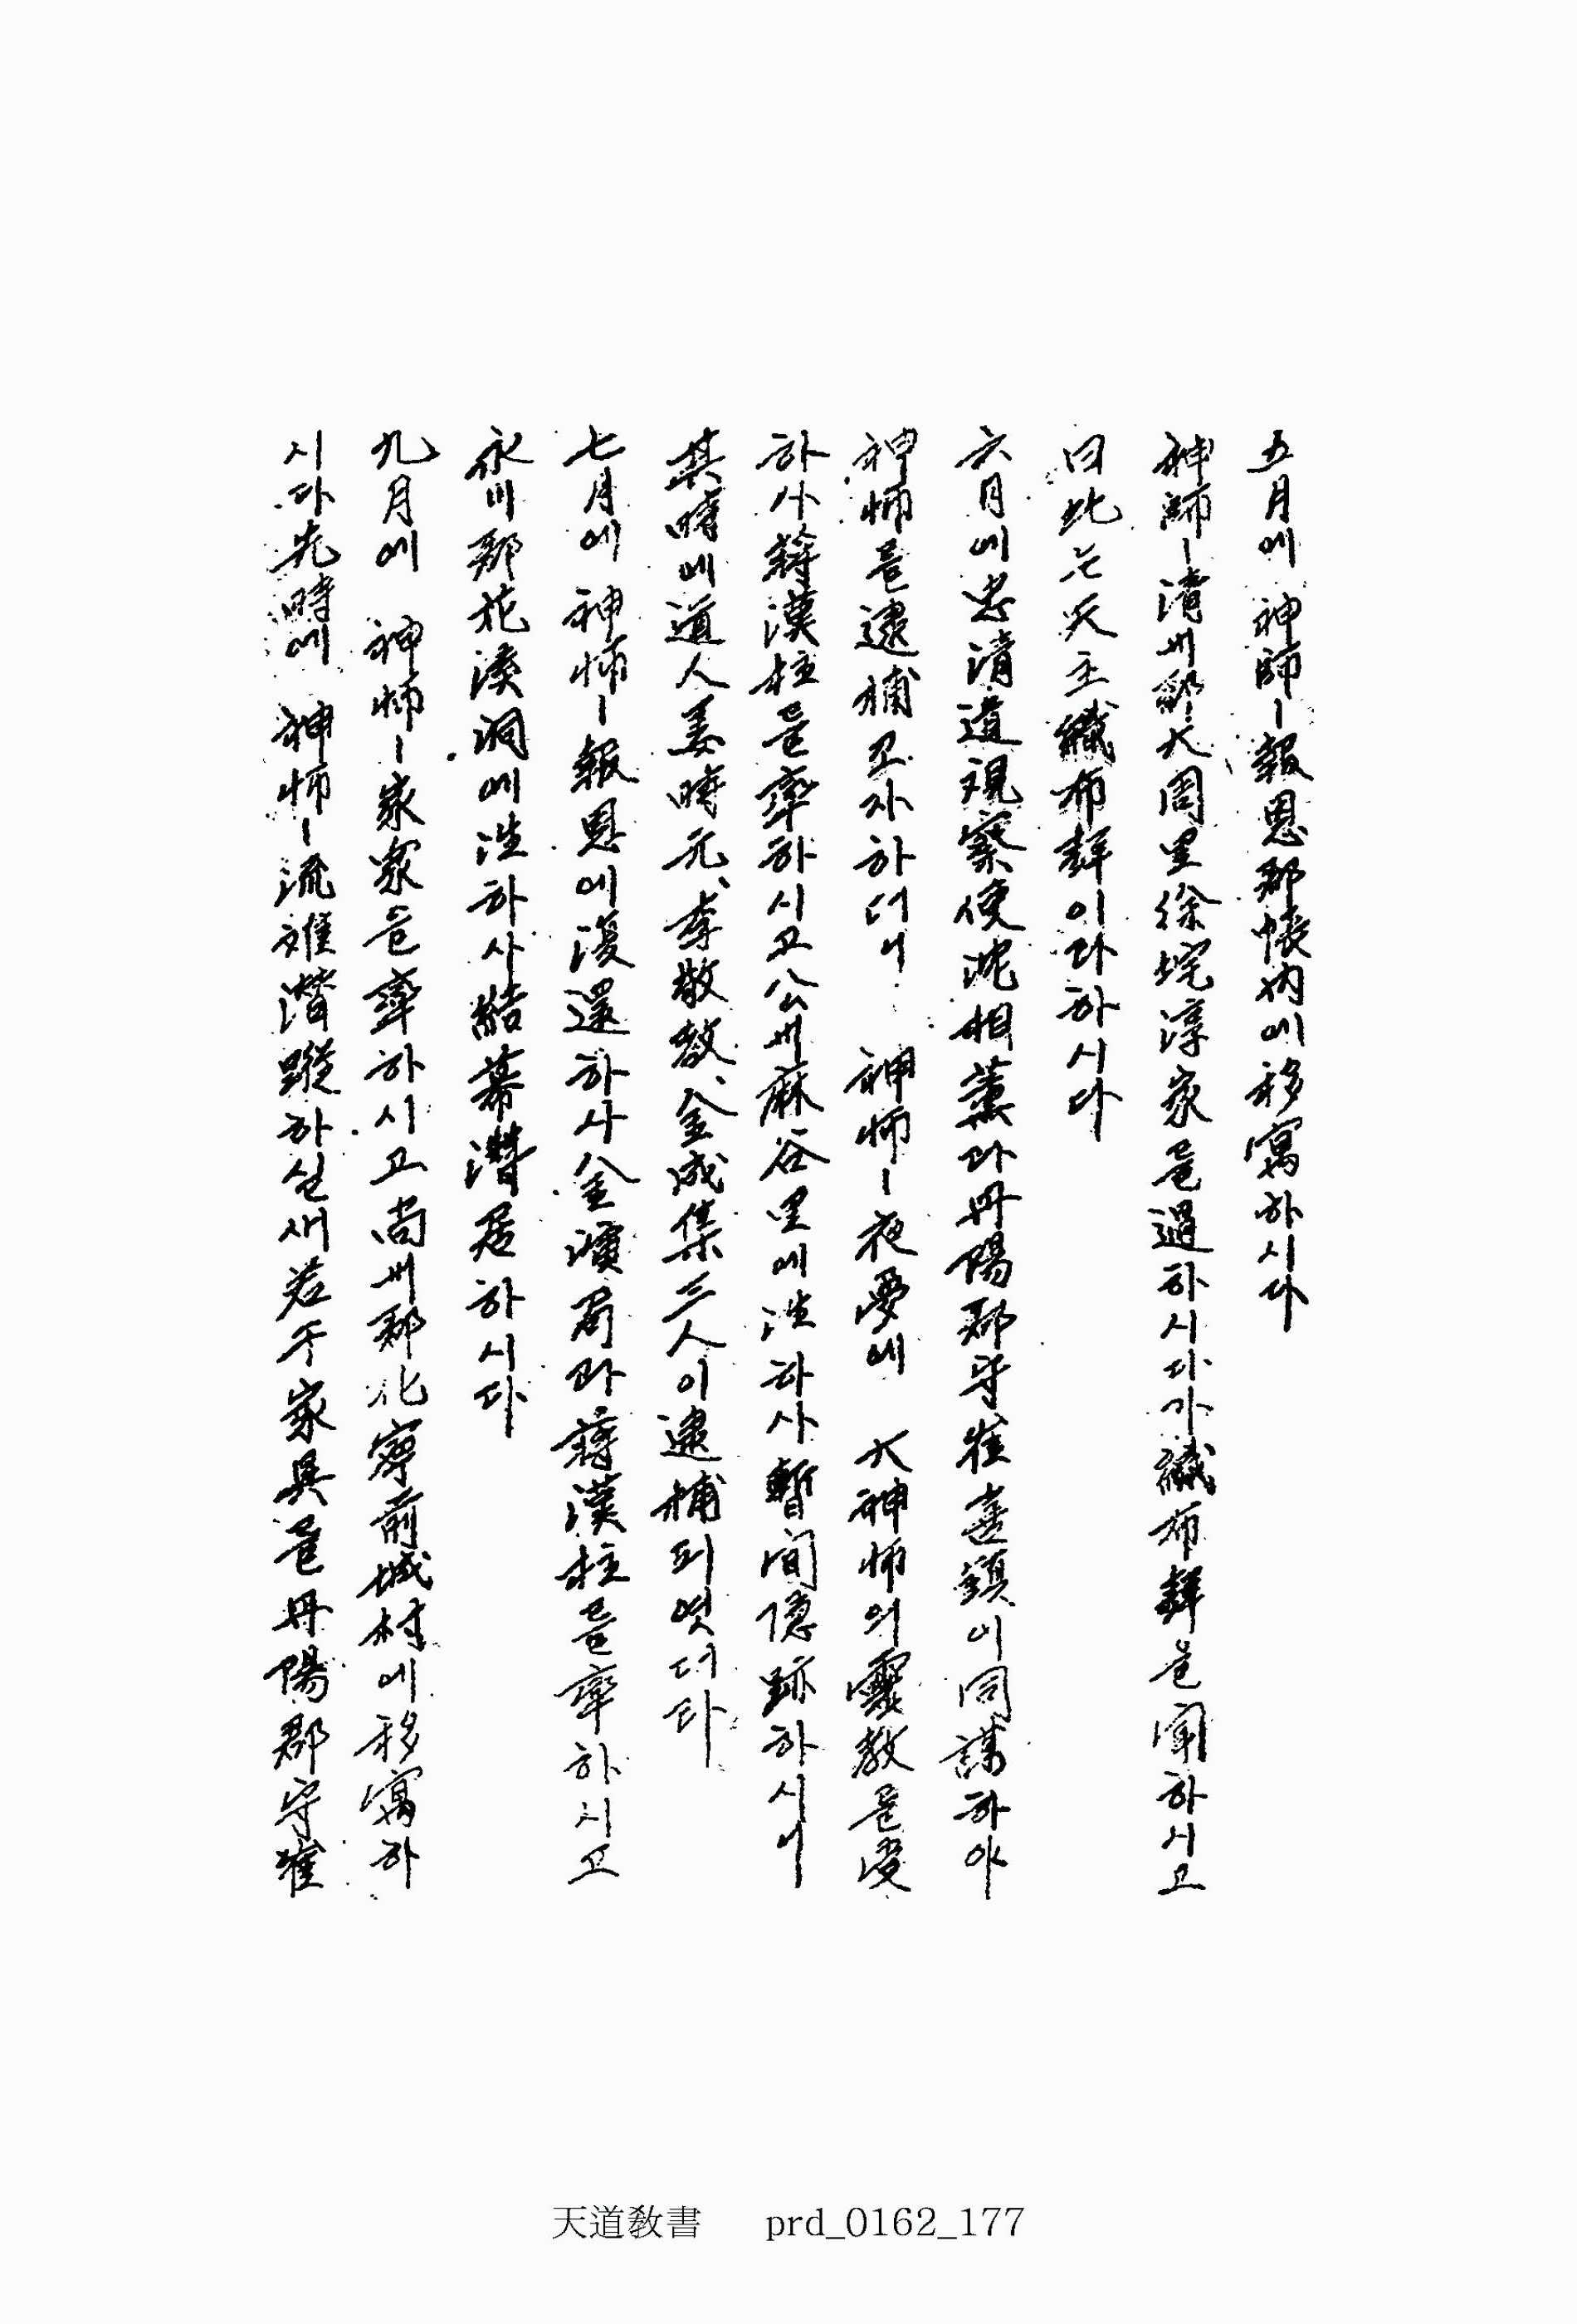 五月에 神師ㅣ報恩郡帳內에移寓하시다
神師ㅣ淸州郡大周里徐垞淳家를過하시다가織布聲을聞하시고
曰此는天主織布聲이라하시다
六月에忠淸道觀察使沈相薰과丹陽郡守崔喜鎭이同謀하야
神師를逮捕코자하더니 神師ㅣ夜夢에 大神師의靈敎를受
하사蔣漢柱를率하시고公州麻谷里에往하사暫間隱跡하시니
其時에道人姜時元、李敬敎、金成集三人이逮捕되엿더라
七月에 神師ㅣ報恩에復還하사金演局과蔣漢柱를率하시고
永川郡花溪洞에往하사結幕潛居하시다
九月에 神師ㅣ家眾을率하시고尙州郡化寧前城村에移寓하
시다先時에 神師ㅣ流離潛蹤하실새若干家具를丹陽郡守崔
天道敎書 prd_0162_177